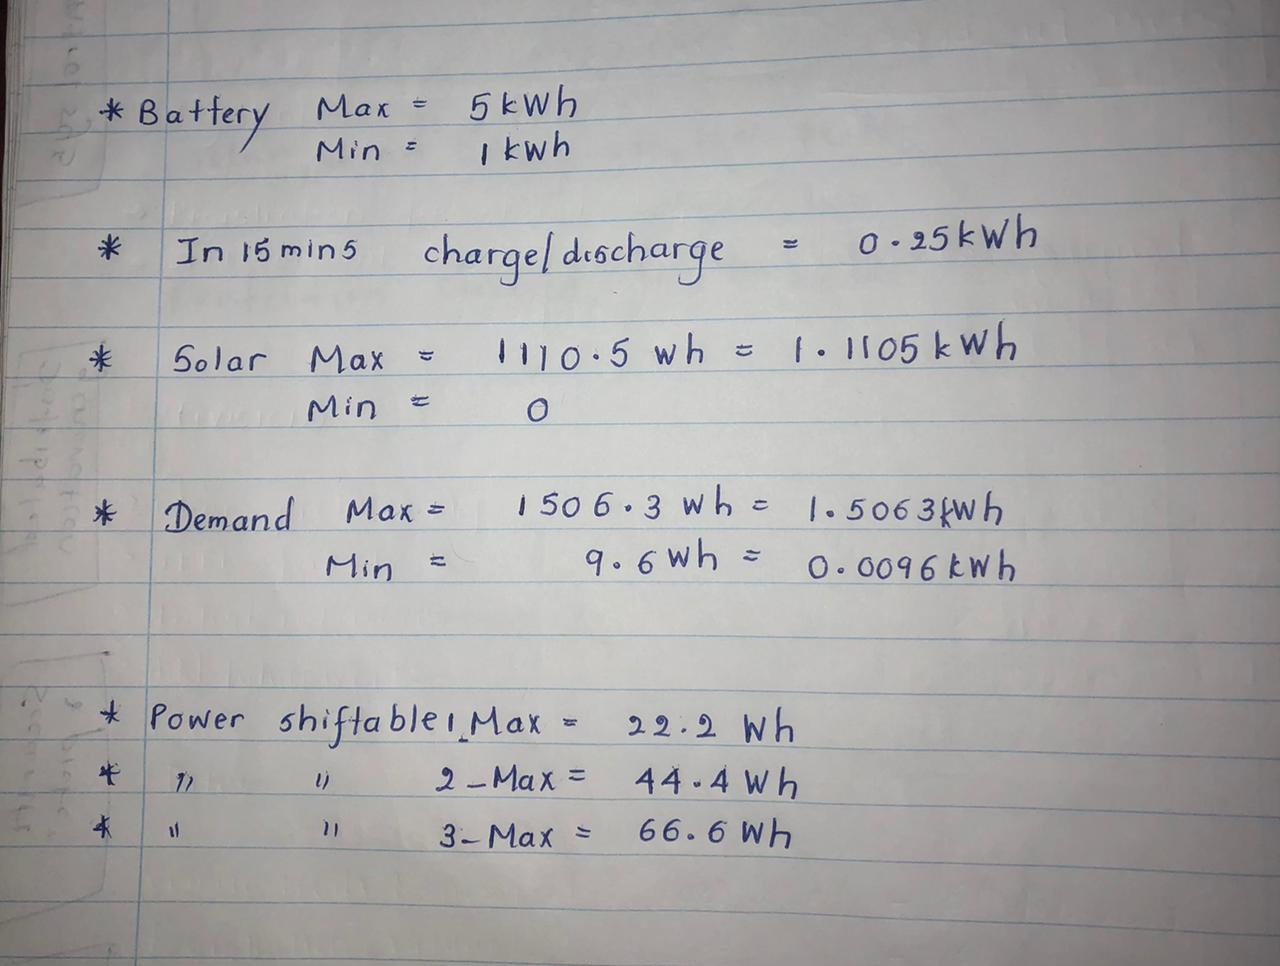 * Battery Max = 5 kWh
Min = 1 kWh
* In 15 mins charge/discharge = 0.25kWh
* Solar Max = 1110.5 Wh = 1.1105 kWh
Min = 0
* Demand Max = 1506.3 Wh = 1.5063kWh
Min = 9.6 Wh = 0.0096 kWh
* Power shiftable 1_Max = 22.2 Wh
* " " 2-Max = 44.4 Wh
* " " 3-Max = 66.6 Wh